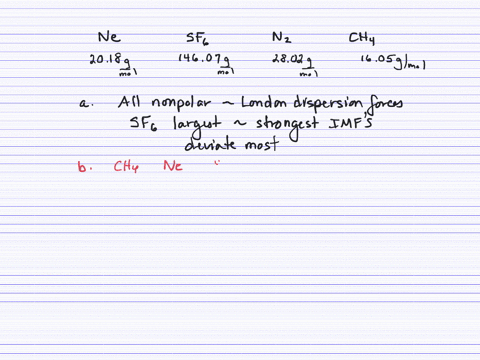 Ne SF6 N2 CH4
20.18 g/mol 146.07 g/mol 28.02 g/mol 16.05 g/mol
a. All nonpolar ~ London dispersion forces
SF6 largest ~ strongest IMF's
deviate most
b. CH4 Ne